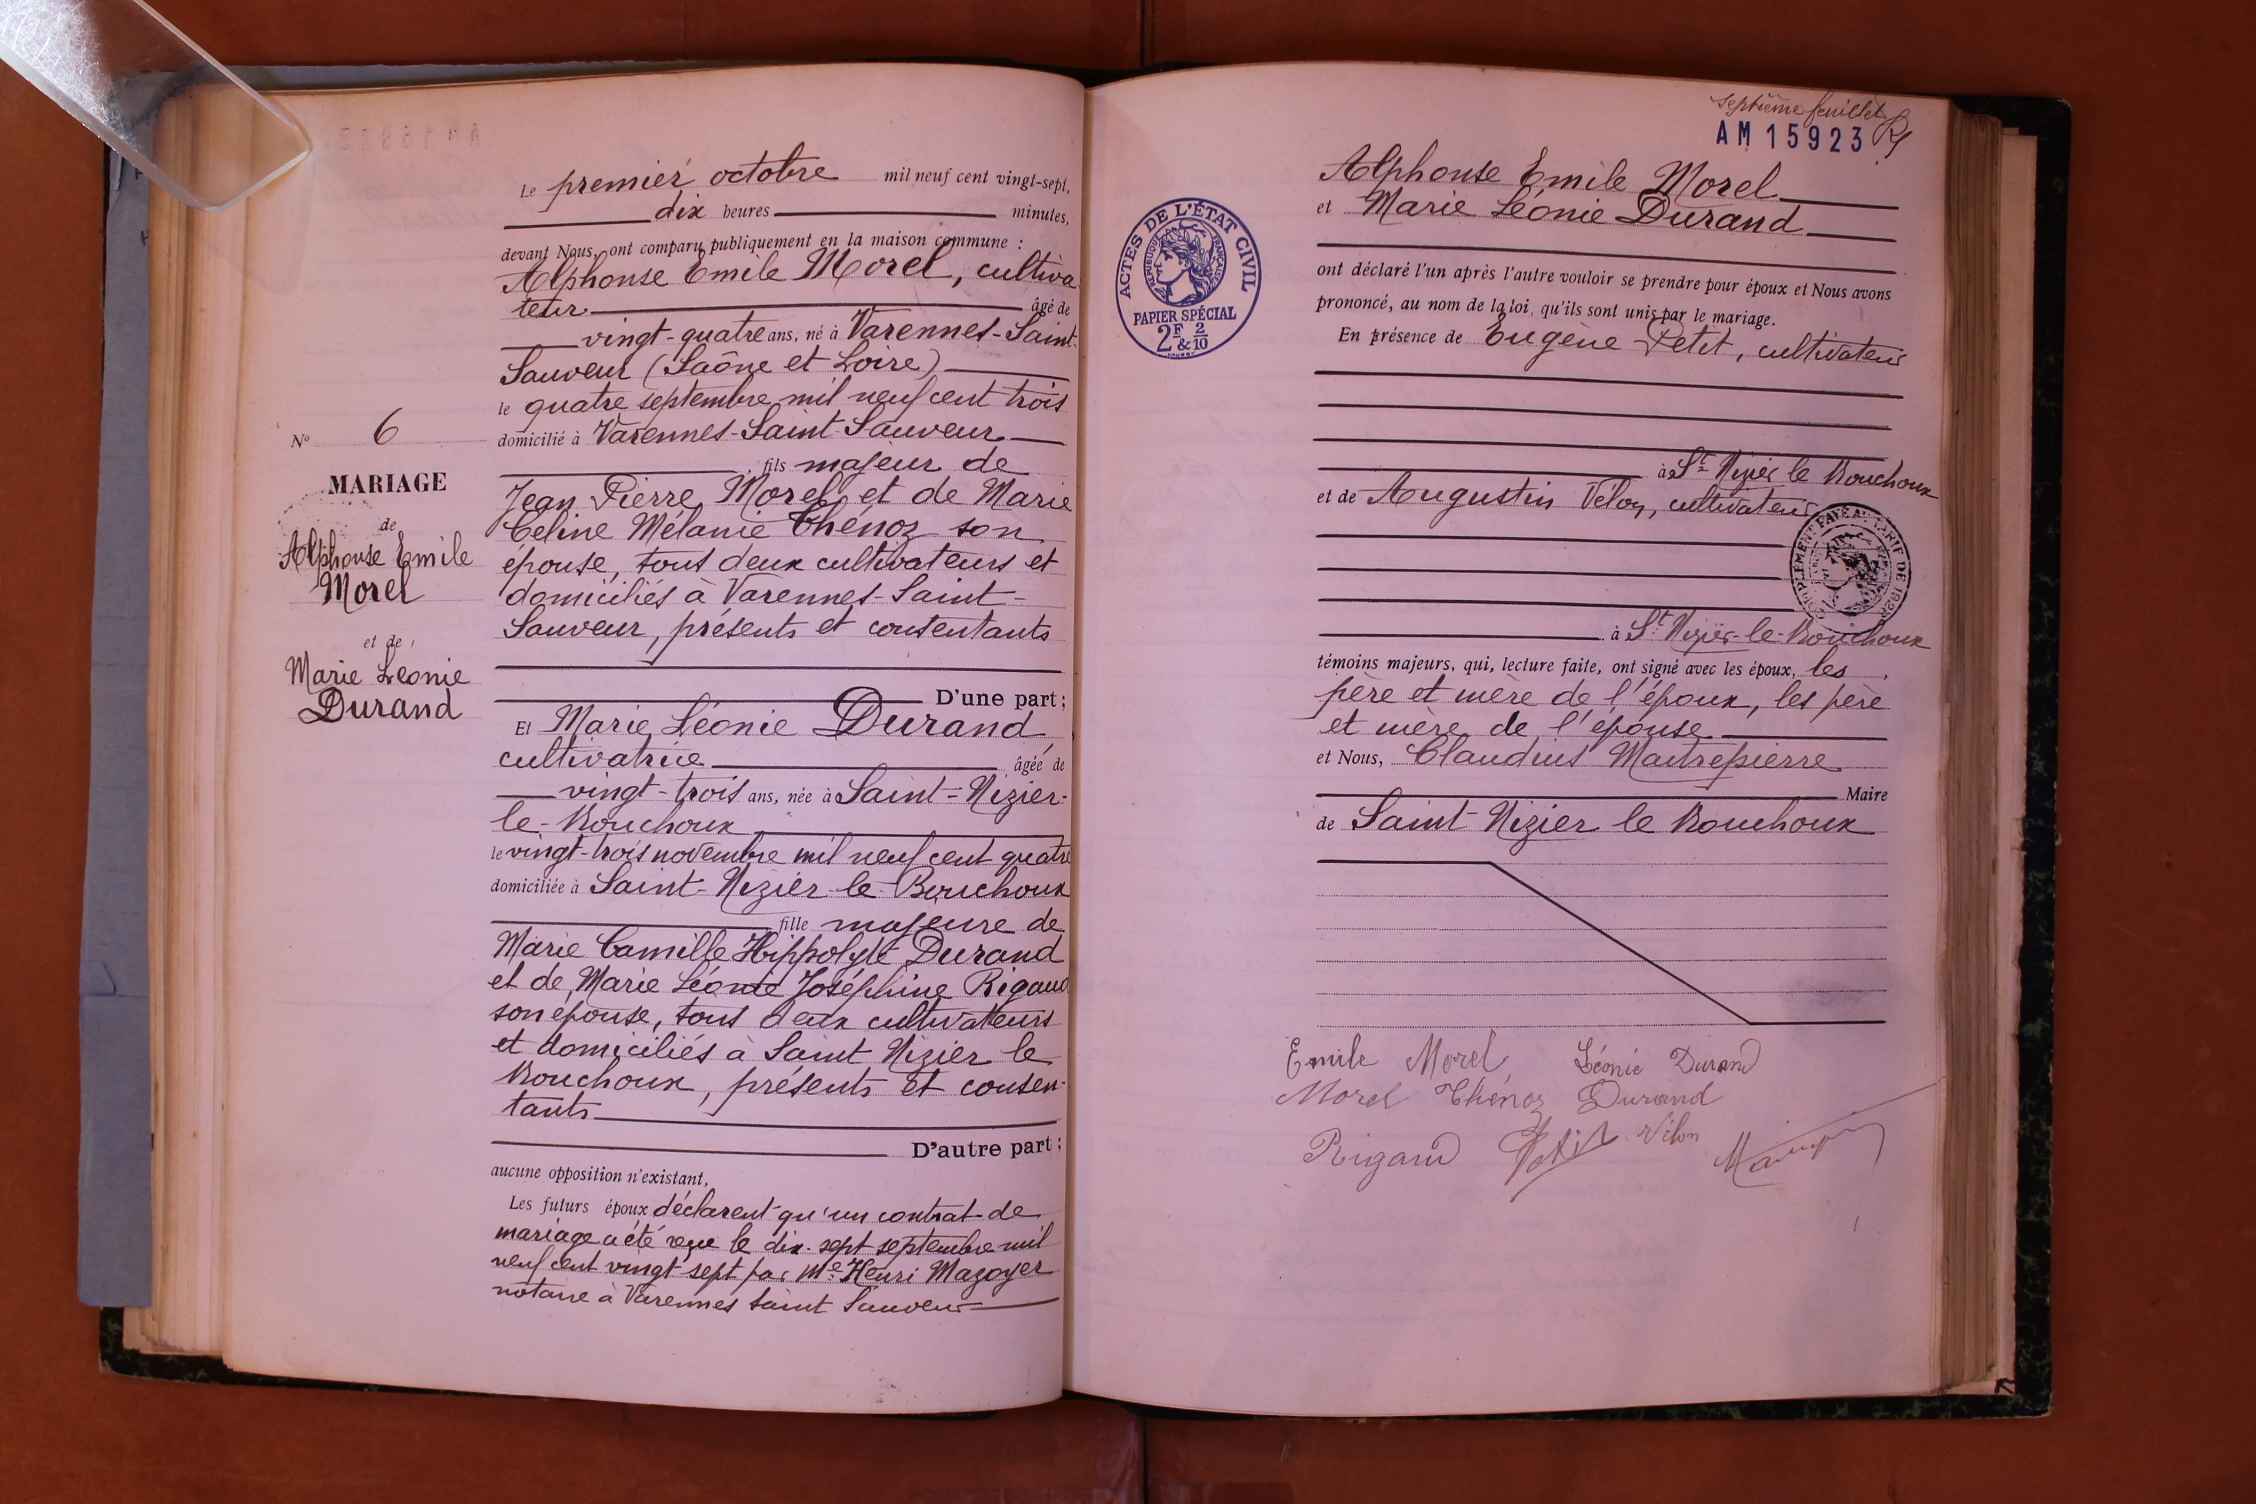 Le premier octobre mil neuf cent vingt-sept,
dix heures minutes,
devant Nous, ont comparu publiquement en la maison commune :
Alphonse Emile Morel, cultiva
teur âgé de
vingt-quatre ans, né à Varennes-Saint-
Sauveur (Saône et Loire)
le quatre septembre mil neuf cent trois
domicilié à Varennes-Saint-Sauveur
, fils majeur de
Jean Pierre Morel et de Marie
Celine Mélanie Thénoz son
épouse, tous deux cultivateurs et
domiciliés à Varennes-Saint-
Sauveur, présents et consentants
D'une part ;
Et Marie Léonie Durand
cultivatrice âgée de
vingt-trois ans, née à Saint-Nizier-
le-Bouchoux
le vingt-trois novembre mil neuf cent quatre
domiciliée à Saint-Nizier-le-Bouchoux
fille majeure de
Marie Camille Hippolyte Durand
et de Marie Léonie Joséphine Rigaud
son épouse, tous deux cultivateurs
et domiciliés à Saint Nizier le
Bouchoux, présents et consen-
tants
D'autre part ;
aucune opposition n'existant,
Les futurs époux déclarent qu'un contrat de
mariage a été reçu le dix-sept septembre mil
neuf cent vingt sept par Me Henri Mazoyer
notaire à Varennes Saint Sauveur
N° 6
MARIAGE
de
Alphonse Emile
Morel
et de
Marie Leonie
Durand
septième feuillet
AM 15923
Alphonse Emile Morel
et Marie Léonie Durand
ont déclaré l'un après l'autre vouloir se prendre pour époux et Nous avons
prononcé, au nom de la loi, qu'ils sont unis par le mariage.
En présence de Eugène Petit, cultivateur
à St Nizier le Bouchoux
et de Augustin Velon, cultivateur
à St Nizier-le-Bouchoux
témoins majeurs, qui, lecture faite, ont signé avec les époux, les
père et mère de l'époux, les père
et mère de l'épouse
et Nous, Claudius Maitrepierre
Maire
de Saint-Nizier le Bouchoux
Emile Morel Léonie Durand
Morel Thénoz Durand
Rigaud Petit Vilon
ACTES DE L'ÉTAT CIVIL
RÉPUBLIQUE FRANÇAISE
PAPIER SPÉCIAL
2F & 2/10